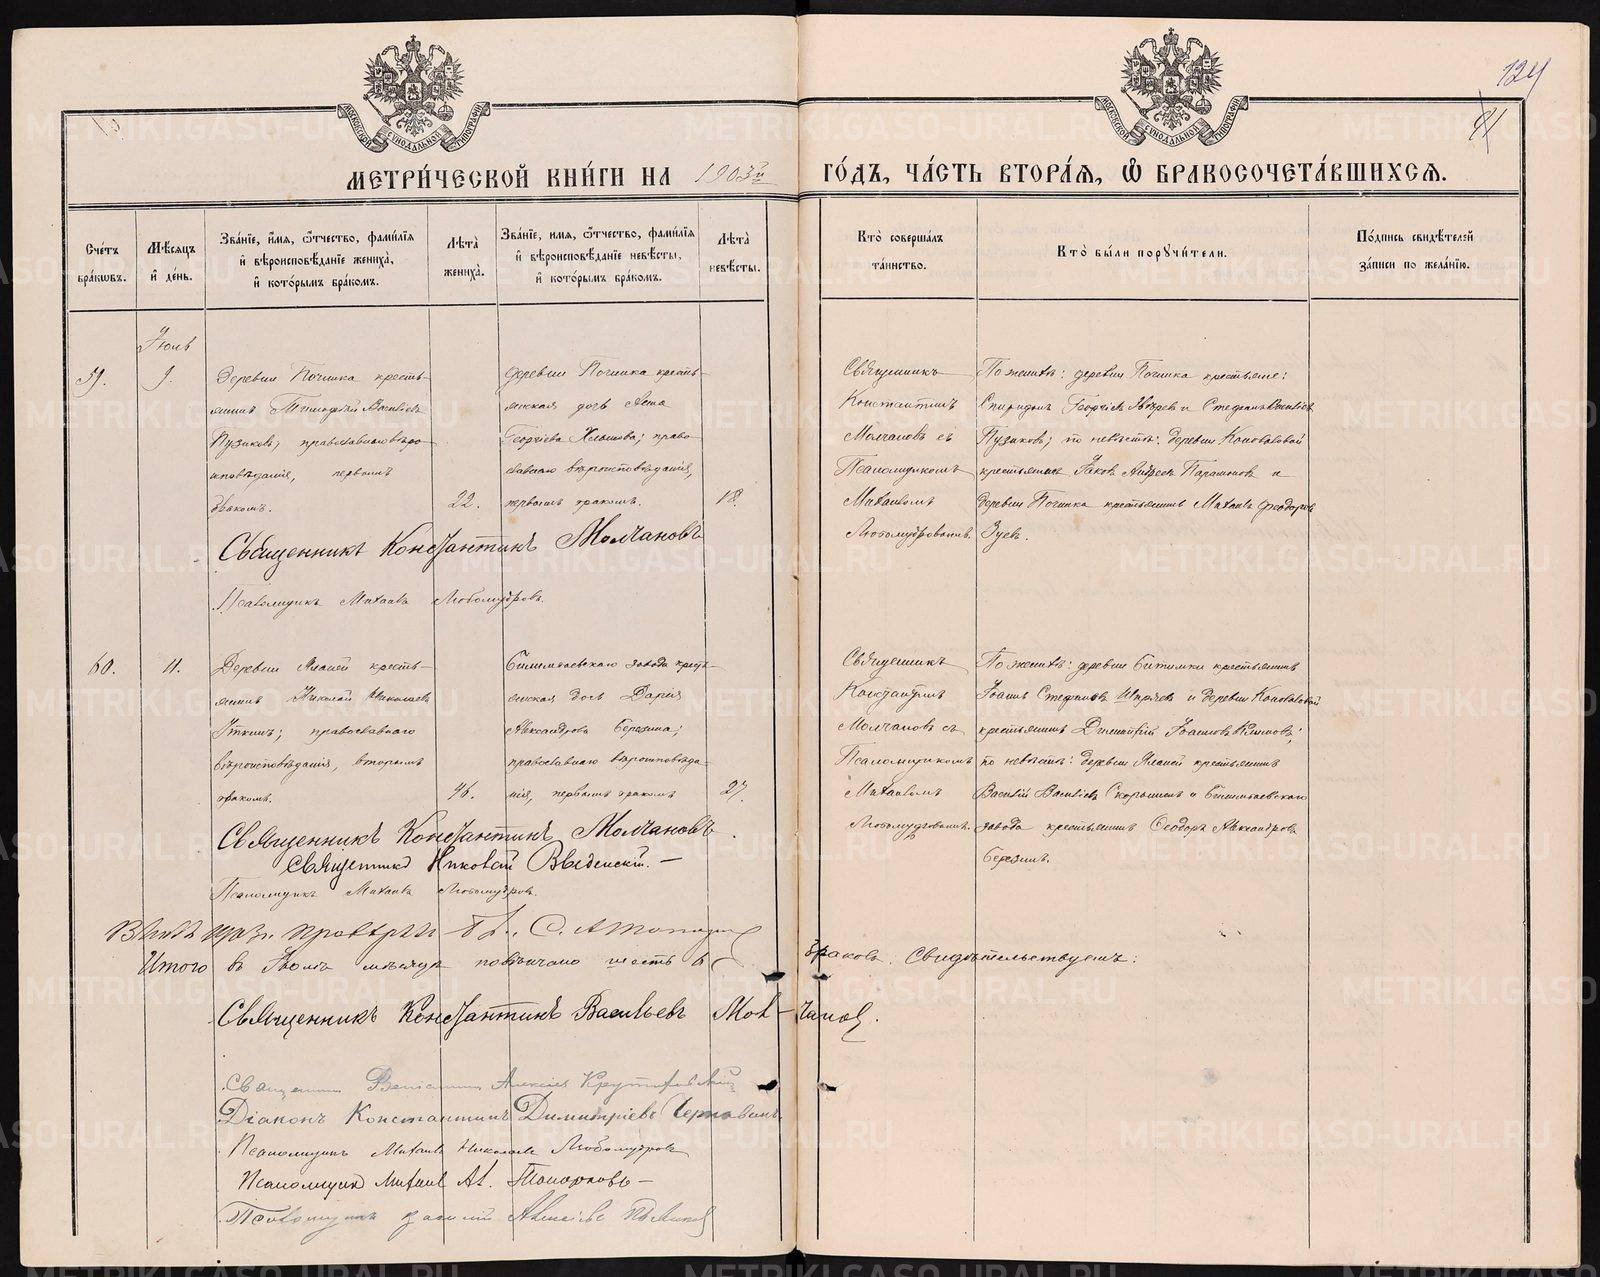 124
МОСКОВСКОЙ СѴНОДАЛЬНОЙ ТИПОГРАФІИ
МОСКОВСКОЙ СѴНОДАЛЬНОЙ ТИПОГРАФІИ
МЕТРИ́ЧЕСКОЙ КНИ́ГИ НА 1903й ГО́ДЪ, ЧА́СТЬ ВТОРА́Я, Ѽ БРАКОСОЧЕТА́ВШИХСЯ.
Сче́тъ бра́ковъ.
Мѣ́сяцъ и҆ де́нь.
Зва́нїе, и҆́мя, ѻ҆́тчество, фами́лїя и҆ вѣроисповѣ́данїе жениха̀, и҆ кото́рымъ бра́комъ.
Лѣта̀ жениха̀.
Зва́нїе, имя, ѻ҆́тчество, фами́лїя и҆ вѣроисповѣ́данїе невѣ́сты, и҆ кото́рымъ бра́комъ.
Лѣта̀ невѣ́сты.
Кто̀ соверша́лъ та́инство.
Кто̀ бы́ли порꙋчи́тели.
По́дпись свидѣ́телей за́писи по жела́нїю.
Іюль
59.
9.
Деревни Починка кресть-
янинъ Тимофей Васильевъ
Пузиковъ; православнаго вѣро-
исповѣданія, первымъ
бракомъ.
22.
деревни Починка кресть-
янская дочь Анна
Георгіева; право-
славнаго вѣроисповѣданія,
первымъ бракомъ.
18.
Священникъ
Константинъ
Молчановъ съ
Псаломщикомъ
Михаиломъ
Любомудровымъ.
По женихѣ: деревни Починка крестьяне:
Спиридонъ Георгіевъ Звѣревъ и Стефанъ Васильевъ
Пузиковъ; по невѣстѣ: деревни Коноваловой
крестьянинъ Іаковъ Андреевъ Парамоновъ и
деревни Починка крестьянинъ Михаилъ Феодоровъ
Зуевъ.
Священникъ Константинъ Молчановъ
Псаломщикъ Михаилъ Любомудровъ.
60.
11.
Деревни кресть-
янинъ Николай Николаевъ
Уткинъ; православнаго
вѣроисповѣданія, вторымъ
бракомъ.
46.
Билимбаевскаго завода кресть-
янская дочь Дарія
Александрова Березина;
православнаго вѣроисповѣда-
нія, первымъ бракомъ
27.
Священникъ
Константинъ
Молчановъ съ
Псаломщикомъ
Михаиломъ
Любомудровымъ.
По женихѣ: деревни Битимки крестьянинъ
Іоаннъ Стефановъ и деревни Коноваловой
крестьянинъ Димитрій Іоанновъ Климовъ;
по невѣстѣ: деревни крестьянинъ
Василій Васильевъ Скорынинъ и Билимбаевскаго
завода крестьянинъ Феодоръ Александровъ
Березинъ.
Священникъ Константинъ Молчановъ.
Священникъ Николай Введенскій. —
Псаломщикъ Михаилъ Любомудровъ.
Итого въ Іюлѣ мѣсяцѣ повѣнчано шесть 6 браковъ. Свидѣтельствуемъ:
Священникъ Константинъ Васильевъ Молчановъ.
Священникъ Алексіев
Діаконъ Константинъ Димитріевъ
Псаломщикъ Михаилъ Николаевъ Любомудровъ
Псаломщикъ Михаилъ Ал. Топорковъ —
Псаломщикъ Алексіевъ